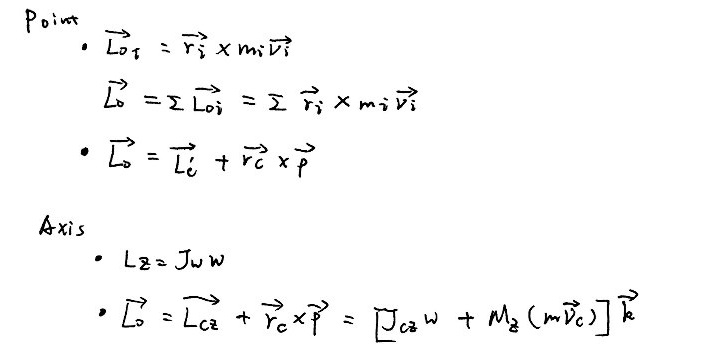 Point
• \vec{L_{oi}} = \vec{r_i} × m_i \vec{v_i}
\vec{L_o} = Σ \vec{L_{oi}} = Σ \vec{r_i} × m_i \vec{v_i}
• \vec{L_o} = \vec{L_c'} + \vec{r_c} × \vec{p}
Axis
• L_z = J_w w
• \vec{L_o} = \vec{L_{cz}} + \vec{r_c} × \vec{p} = [J_{cz} w + M_z (m\vec{v_c})] \vec{k}